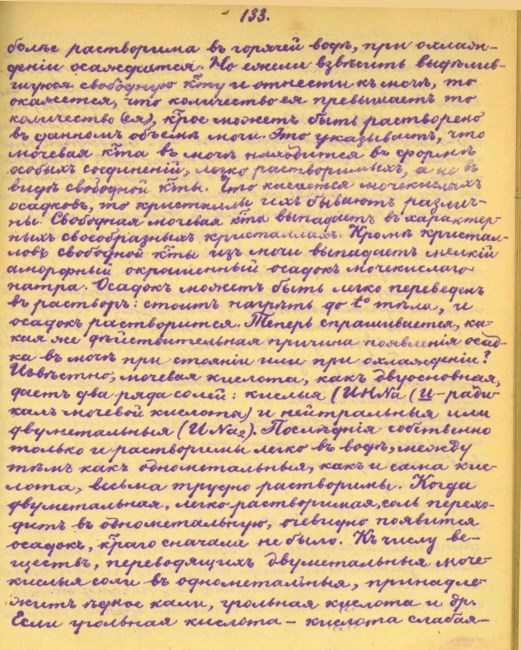 133.
болѣе растворима въ горячей водѣ, при охлаж-
деніи осаждается. Но ежели взвѣсить выдѣлив-
шуюся свободную к҃ту и отнести къ мочѣ, то
окажется, что количество ея превышаетъ то
количество (ея), к҃рое можетъ быть растворено
въ данномъ объемѣ мочи. Это указываетъ, что
мочевая к҃та въ мочѣ находится въ формѣ
особыхъ соединеній, легко растворимыхъ, а не въ
видѣ свободной к҃ты. Что касается мочекислыхъ
осадковъ, то кристаллы ихъ бываютъ различ-
ны. Свободная мочевая к҃та выпадаетъ въ характер-
ныхъ своеобразныхъ кристаллахъ. Кромѣ кристал-
ловъ свободной к҃ты изъ мочи выпадаетъ мелкій
аморфный окрашенный осадокъ мочекислаго
натра. Осадокъ можетъ быть легко переведенъ
въ растворъ: стоитъ нагрѣть до t° тѣла, и
осадокъ растворится. Теперь спрашивается, ка-
кая же дѣйствительная причина появленія осад-
ка въ мочѣ при стояніи или при охлажденіи?
Извѣстно, мочевая кислота, какъ двуосновная,
даетъ два ряда солей: кислыя (UHNa (U-ради-
калъ мочевой кислоты) и нейтральныя или
двуметальныя (UNa₂). Послѣднія собственно
только и растворимы легко въ водѣ, между
тѣмъ какъ однометальныя, какъ и сама кис-
лота, весьма трудно растворимы. Когда
двуметальная, легко-растворимая, соль перехо-
дитъ въ однометальную, очевидно появится
осадокъ, к҃раго сначала не было. Къ числу ве-
ществъ, переводящихъ двуметальныя моче-
кислыя соли въ однометальныя, принадле-
житъ ѣдкое кали, угольная кислота и др.
Если угольная кислота – кислота слабая-